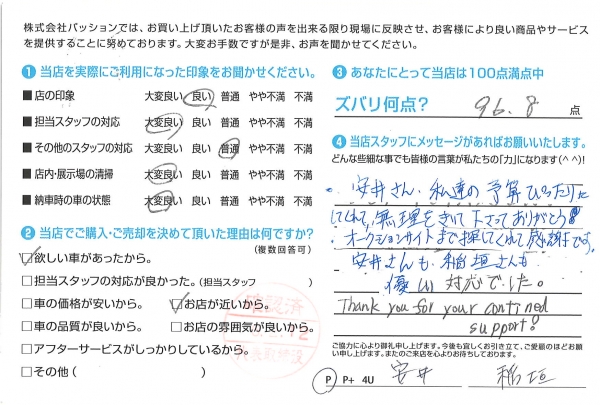 株式会社パッションでは、お買い上げ頂いたお客様の声を出来る限り現場に反映させ、お客様により良い商品やサービス
を提供することに努めております。大変お手数ですが是非、お声を聞かせてください。
❶ 当店を実際にご利用になった印象をお聞かせください。
■ 店の印象 大変良い 良い 普通 やや不満 不満
■ 担当スタッフの対応 大変良い 良い 普通 やや不満 不満
■ その他のスタッフの対応 大変良い 良い 普通 やや不満 不満
■ 店内・展示場の清掃 大変良い 良い 普通 やや不満 不満
■ 納車時の車の状態 大変良い 良い 普通 やや不満 不満
❷ 当店でご購入・ご売却を決めて頂いた理由は何ですか?
(複数回答可)
☑欲しい車があったから。
□担当スタッフの対応が良かった。(担当スタッフ )
□車の価格が安いから。 ☑お店が近いから。
□車の品質が良いから。 □お店の雰囲気が良いから。
□アフターサービスがしっかりしているから。
□その他 ( )
❸ あなたにとって当店は100点満点中
ズバリ何点? 96.8 点
❹ 当店スタッフにメッセージがあればお願いいたします。
どんな些細な事でも皆様の言葉が私たちの「力」になります(^^)!
・安井さん、私達の予算ぴったりに
してくれて、無理をきいて下さってありがとう!
・オークションサイトまで探してくれて感謝です。
安井さんも稲垣さんも
優しい対応でした。
Thank you for your contined
support!
ご協力に心より御礼申し上げます。今後も宜しくお引き立て、ご愛顧のほどお願
い申し上げます。またのご来店を心よりお待ちしております。
P P+ 4U 安井 稲垣